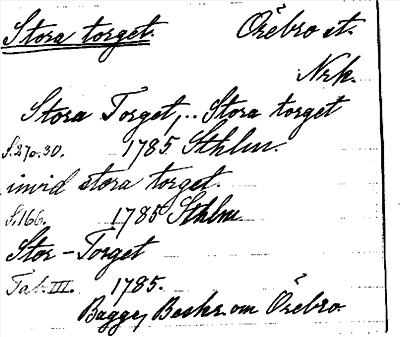 Stora torget. Örebro st.
Nrk.
Stora Torget,.. Stora torget
S. 27 o. 30. 1785 Sthlm.
invid stora torget.
S. 166. 1785 Sthlm
Stor-Torget
Tab. III. 1785.
Bagge, Beskr. om Örebro.